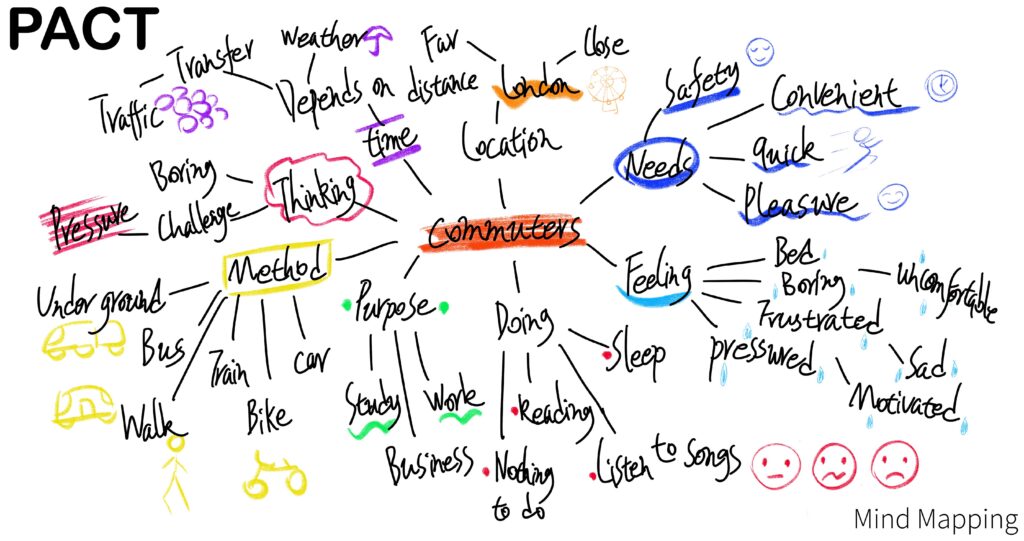 PACT
Transfer
Traffic
Weather
Depends on distance
time
Far
Close
London
Location
Safety
Convenient
Needs
quick
Pleasure
Boring
Thinking
Challenge
Pressure
Commuters
Method
Underground
Bus
Walk
Train
Bike
Car
Purpose
Study
Work
Business
Doing
Sleep
Reading
Listen to songs
Nothing
to do
Feeling
Bed
Boring
Uncomfortable
Frustrated
Sad
pressured
Motivated
Mind Mapping